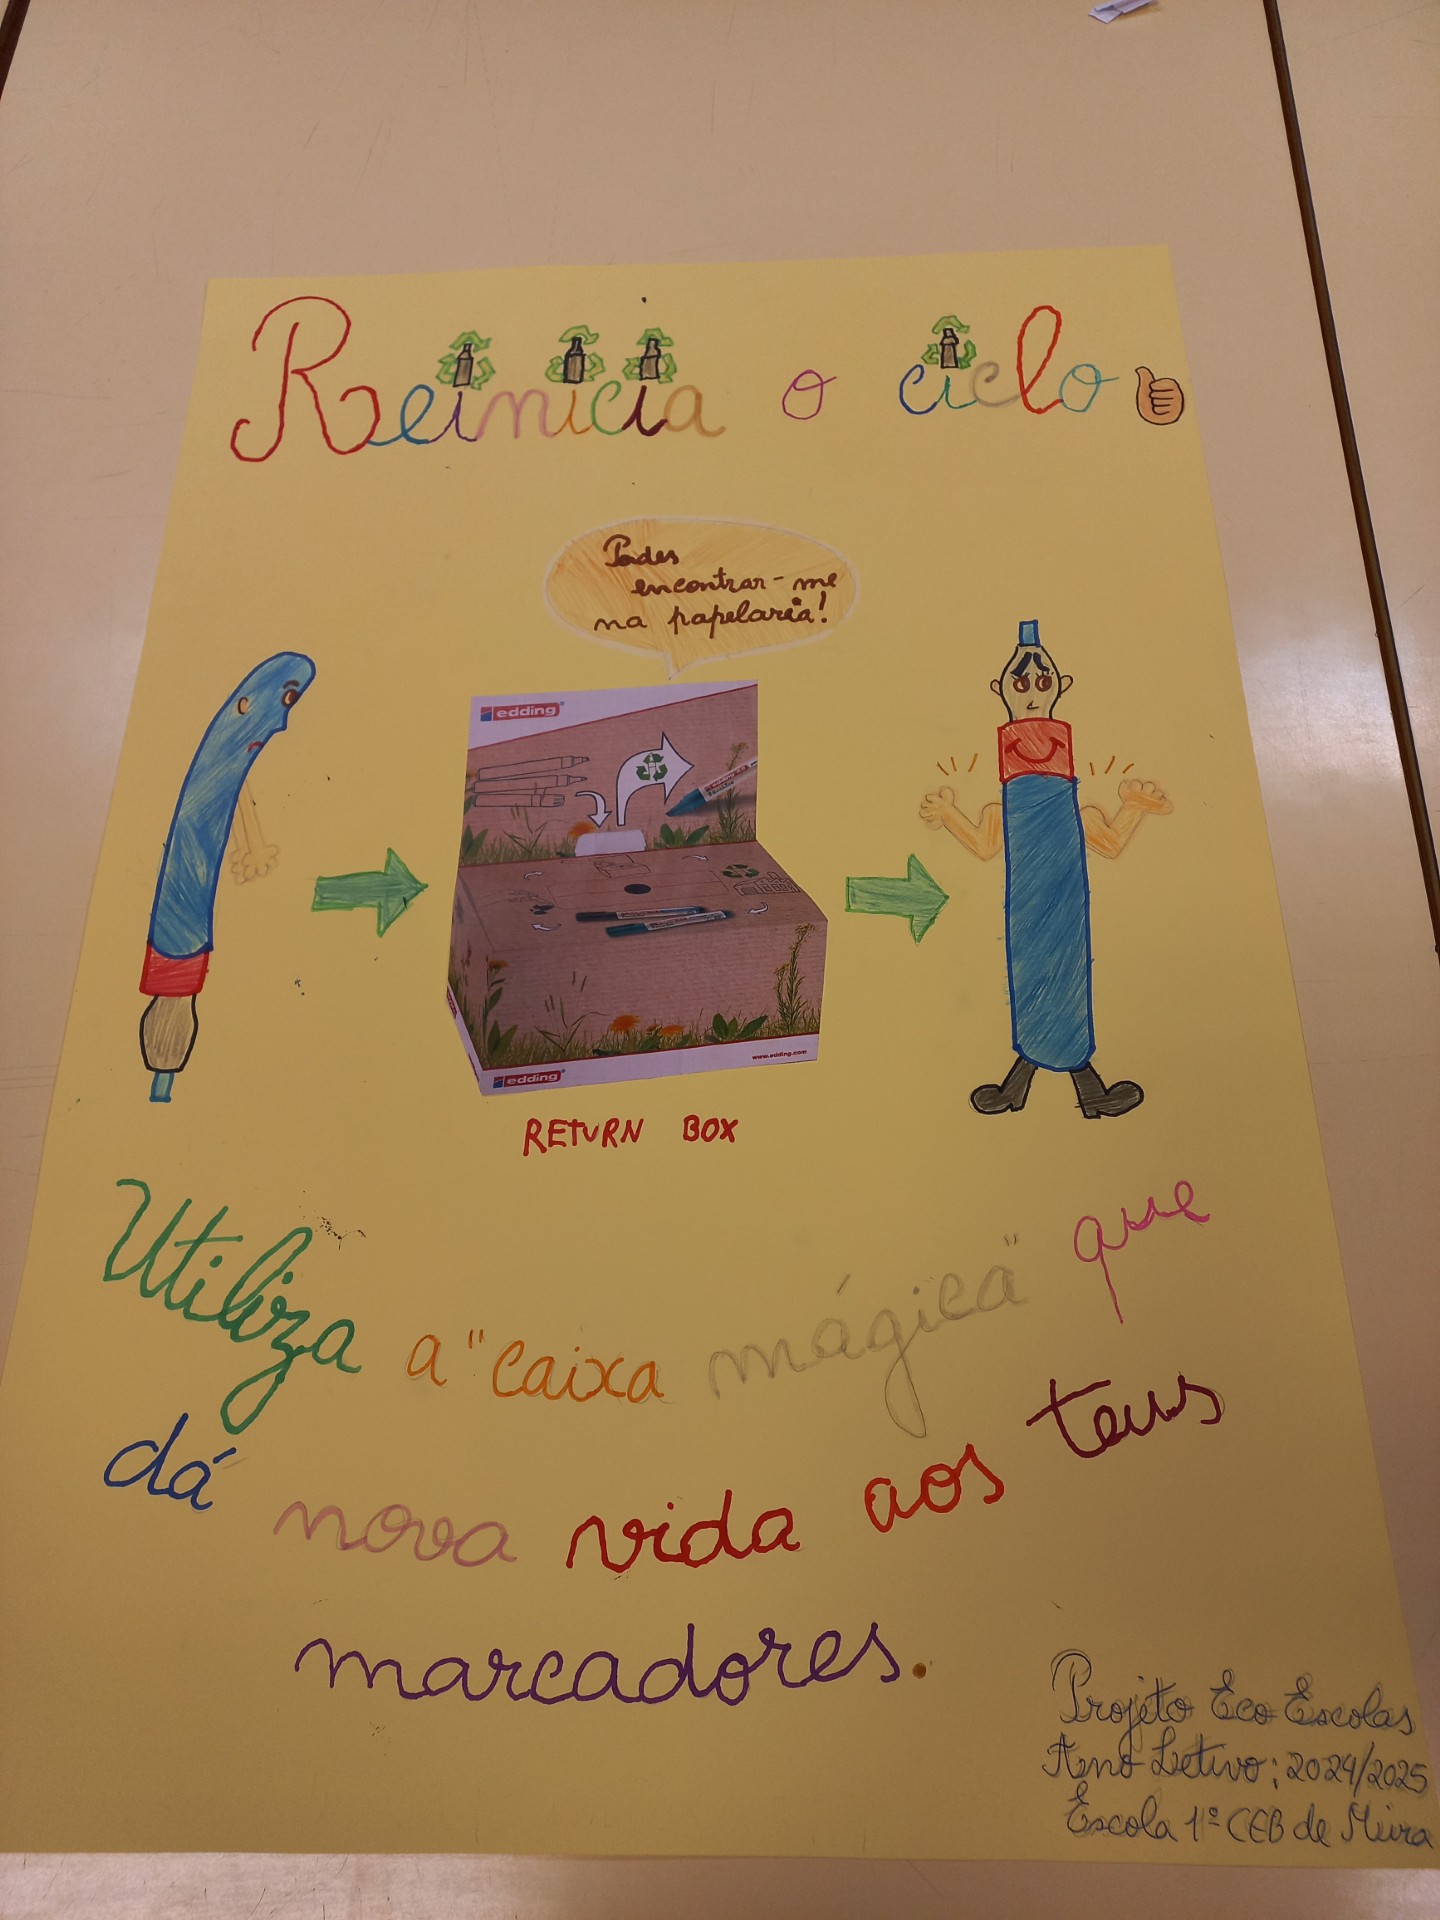 Reinicia o ciclo
Podes
encontrar-me
na papelaria!
edding
www.edding.com
edding
RETURN BOX
Utiliza a "caixa mágica" que
dá nova vida aos teus
marcadores.
Projeto Eco Escolas
Ano Letivo: 2024/2025
Escola 1º CEB de Mira